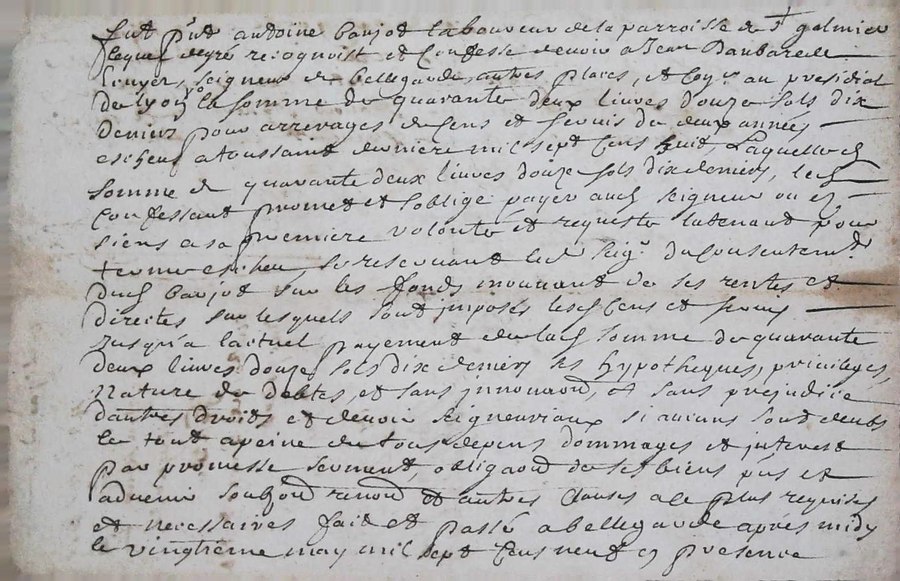 fut pnt antoine baujot laboureur de la parroisse de st galmier
lequel de gré recognoist et Confesse devoir a Jean
seigneur de bellegarde, autres places, et Coner au presidial
de lyon la somme de quarante deux liures douze sols dix
deniers pour arrerages de Cens et seruis de deux années
escheus a toussaint derniere mil sept Cens huit Laquelle d
somme de quarante deux liures douze sols dix deniers, led
Confessant promet et soblige payer aud seigneur ou es
siens a sa premiere volonté et requeste le tenant pour
terme escheu, se reseruant led seigr du Consentement
dud baujot sur les fonds mouuant de ses rentes et
directes sur lesquels sont imposés lesd Cens et seruis
Jusqu'a lactuel payement de lad somme de quarante
deux liures douze sols dix deniers ses hypotheques, priuileges,
Nature de debtes, et sans jnnouaon, et sans prejudice
dautres droits et deuoir seigneuriaux si aucuns sont deubs
le tout a peine de tous depens dommages et jnterest
par promesse serment, obligaon de ses biens pns et
aduenir soubzon renon et autres Clauses a ce plus requises
et necessaires fait et passé a bellegarde apres midy
le vingtieme may mil sept Cens neuf en presence